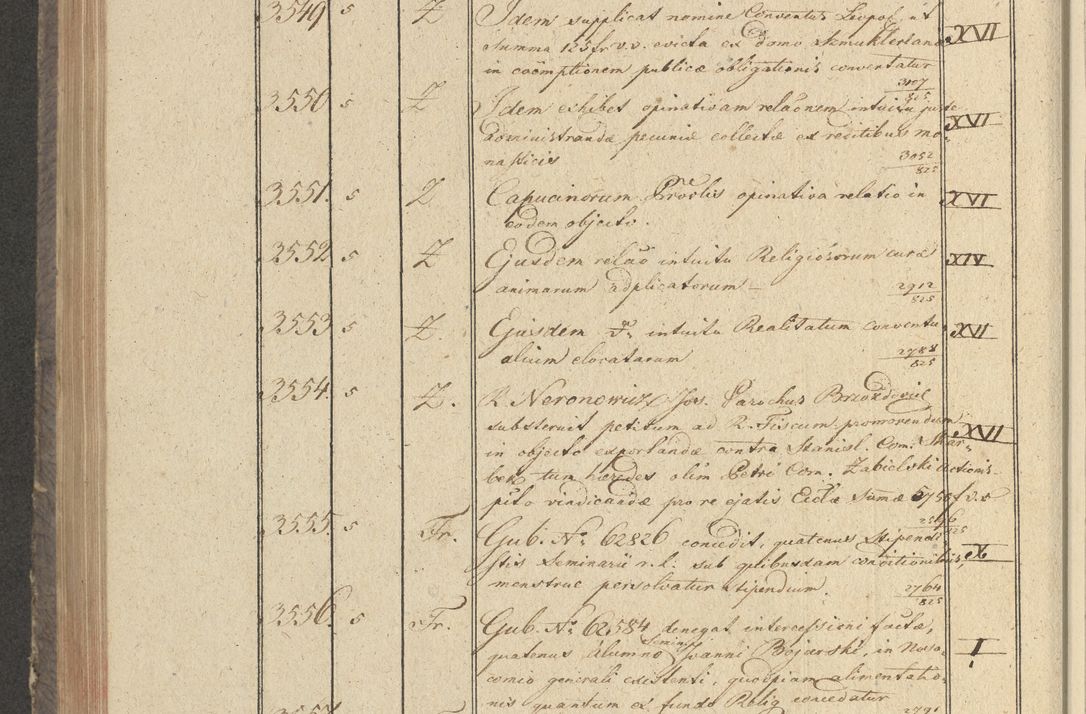 3549 5 Z Idem supplicat nomine Conventus Leopol. ut
summa 125 fr v.v. evicta ex domo Szmuklerland XVI
in coëmptionem publicæ obligationis convertatur
3107
825
3550 5 Z Idem exhibet opinativam relaõnem intuitu juste
administrandæ pecuniæ collectæ ex reditibus mo- XVI
nasticis 3052
825
3551. 5 Z Capucinorum Provlis opinativa relatio in XVI
eodem objecto.
3552 5 Z Ejusdem relaõ intuitu Religiosorum curæ XIV
animarum adplicatorum – 2912
825
3553 5 Z. Ejusdem intuitu Realitatum conventu- XVI
alium elocatarum 2788
825
3554. 5 Z. R. Neronowicz Jos. Parochus Brzozdoviec
substernit petitum ad R. Fiscum promovendum XVII
in objecto exportandæ contra Stanisl. Com. Skar-
bek tum hæredes olim Petri Com. Zabielski actionis
pũto vindicandæ pro re ejatis Eclæ sumæ 5750 f v.v
2516
825
3555. 5 Fr. Gub. Nº 62826 concedit, quatenus Stipendi
stis Seminarii r. l. sub qlibusdam conditionibus, X
menstrue persolvatur stipendium. 2764
825
3556. 5 Fr. Gub. Nº 62584 denegat intercessioni factæ,
quatenus Alumno Semin. Joanni Bojarski, in Noso- I
comio generali existenti, quodpiam alimentatio-
nis quantum ex fundo Relig concedatur 2791
3557